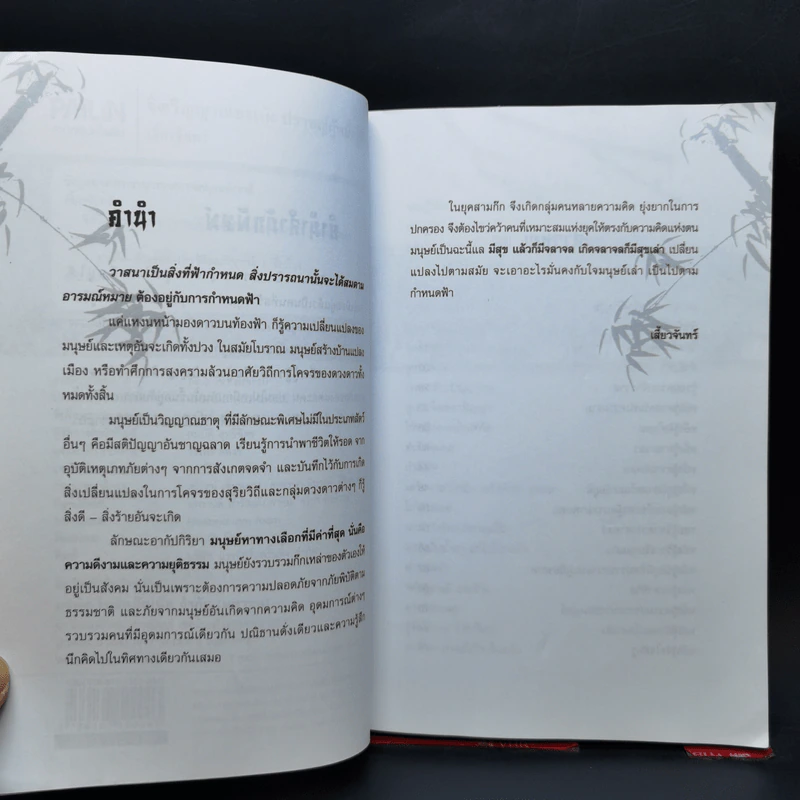 คำนำ
วาสนาเป็นสิ่งที่ฟ้ากำหนด สิ่งปรารถนานั้นจะได้สมตาม
อารมณ์หมาย ต้องอยู่กับการกำหนดฟ้า
แค่แหงนหน้ามองดาวบนท้องฟ้า ก็รู้ความเปลี่ยนแปลงของ
มนุษย์และเหตุอันจะเกิดทั้งปวง ในสมัยโบราณ มนุษย์สร้างบ้านแปลง
เมือง หรือทำศึกการสงครามล้วนอาศัยวิถีการโคจรของดวงดาวทั้ง
หมดทั้งสิ้น
มนุษย์เป็นวิญญาณธาตุ ที่มีลักษณะพิเศษไม่มีในประเภทสัตว์
อื่นๆ คือมีสติปัญญาอันชาญฉลาด เรียนรู้การนำพาชีวิตให้รอด จาก
อุบัติเหตุเภทภัยต่างๆ จากการสังเกตจดจำ และบันทึกไว้กับการเกิด
สิ่งเปลี่ยนแปลงในการโคจรของสุริยวิถีและกลุ่มดวงดาวต่างๆ ก็รู้
สิ่งดี – สิ่งร้ายอันจะเกิด
ลักษณะอากัปกิริยา มนุษย์หาทางเลือกที่มีค่าที่สุด นั่นคือ
ความดีงามและความยุติธรรม มนุษย์ยังรวบรวมก๊กเหล่าของตัวเองให้
อยู่เป็นสังคม นั่นเป็นเพราะต้องการความปลอดภัยจากภัยพิบัติตาม
ธรรมชาติ และภัยจากมนุษย์อันเกิดจากความคิด อุดมการณ์ต่างๆ
รวบรวมคนที่มีอุดมการณ์เดียวกัน ปณิธานดั่งเดียวและความรู้สึก
นึกคิดไปในทิศทางเดียวกันเสมอ
ในยุคสามก๊ก จึงเกิดกลุ่มคนหลายความคิด ยุ่งยากในการ
ปกครอง จึงต้องไขว่คว้าคนที่เหมาะสมแห่งยุคให้ตรงกับความคิดแห่งตน
มนุษย์เป็นฉะนี้แล มีสุข แล้วก็มีจลาจล เกิดจลาจลก็มีสุขเล่า เปลี่ยน
แปลงไปตามสมัย จะเอาอะไรมั่นคงกับใจมนุษย์เล่า เป็นไปตาม
กำหนดฟ้า
เสี้ยวจันทร์